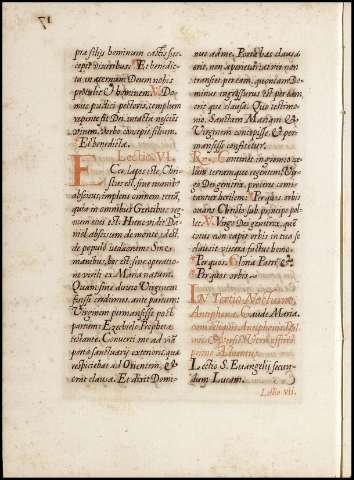 17
præ filijs hominum castis sus-
cepit visceribus. Et benedic-
ta in æternum Deum nobis
protulit & hominem. V. Do-
mus pudici pectoris, templum
repente fit Dei, intacta nesciens
virum, verbo concepit filium.
Et benedicta.
Lectio VI.
Ecce lapis est, Chri-
stus est, sine manibus
abscisus, implens omnem terrā,
quia in omnibus Gentibus reg-
num eius est. Hunc vidit Da-
niel abscissum de monte, id est,
de populo iudæorum. Sine
manibus, hoc est, sine operatio-
ne virili ex Maria natum.
Quam sine dubio Virginem
fuisse credimus ante partum:
Virginem permansisse post
partum: Ezechiele Propheta
testante. Convertit me ad viā
portæ sanctuarij exterioris, quæ
respiciebat ad Orientem, &
erat clausa. Et dixit Domi-
nus ad me. Porta hæc clausa
erit, non aperietur, et vir non
transiet per eam, quoniam Do-
minus ingressurus est per eam,
erit que clausa. Quo testimo-
nio, Sanctam Mariam &
Virginem concepisse, & per-
mansisse confitetur.
ternum que regentem, Vir-
go Dei genitrix,
orbis
ovans Christo sub principe pol-
let. V. Virgo Dei genitrix, quē
totus non capit orbis, in tua se
clausit viscera factus homo.
Per quos. Gloria Patri, &c.
Per quos orbis
In Tertio Nocturno,
Antiphona. Gaude Maria.
Lectio S. Euangelij secun-
dum Lucam.
Lectio VII.